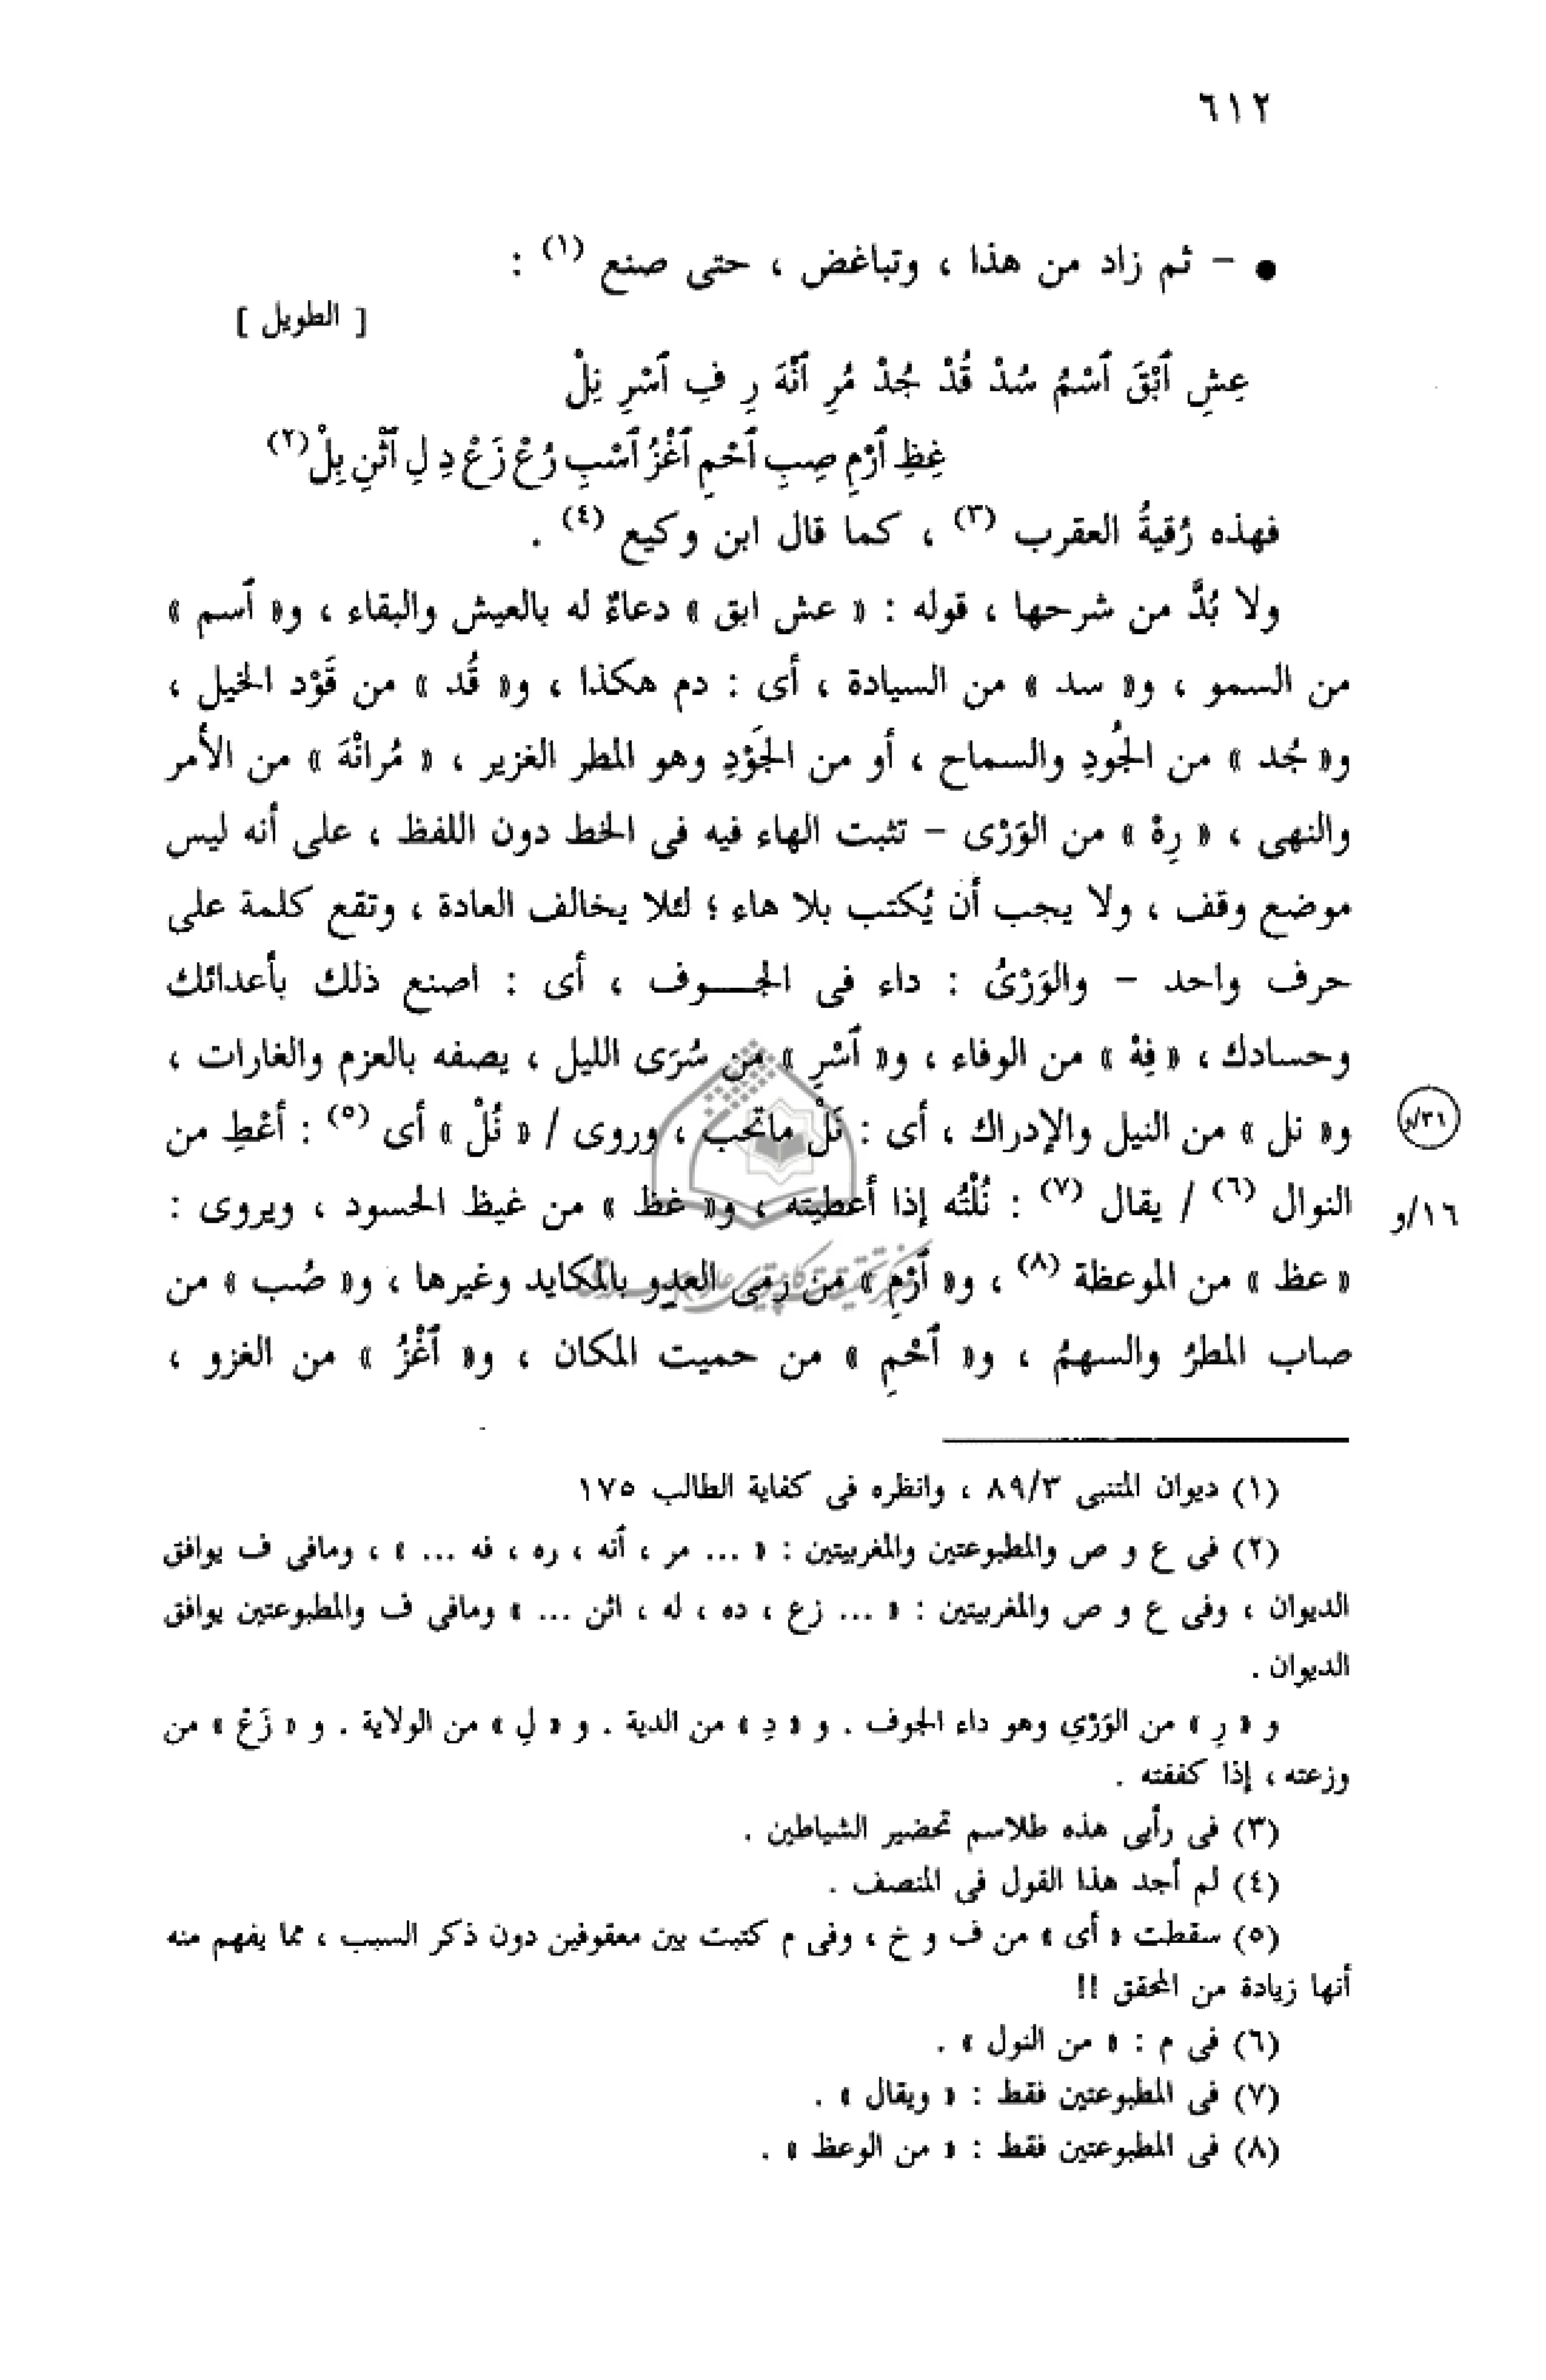 ٦١٢
● – ثم زاد من هذا ، وتباغض ، حتى صنع (١) :
[ الطويل ]
عِشِ ٱبْقَ ٱسْمُ سُدْ قُدْ جُدْ مُرِ ٱنْهَ رِ فِ ٱسْرِ نِلْ
غِظِ ٱرْمِ صِبِ ٱحْمِ ٱغْزُ ٱسْبِ رُعْ زَعْ دِ لِ ٱثْنِ بِلْ (٢)
فهذه رُقيةُ العقرب (٣) ، كما قال ابن وكيع (٤) .
ولا بُدَّ من شرحها ، قوله : « عش ابق » دعاءٌ له بالعيش والبقاء ، و« ٱسم »
من السمو ، و« سد » من السيادة ، أى : دم هكذا ، و« قُد » من قَوْد الخيل ،
و« جُد » من الجُودِ والسماح ، أو من الجَوْدِ وهو المطر الغزير ، « مُرانْهَ » من الأمر
والنهى ، « رِهْ » من الوَرْى – تثبت الهاء فيه فى الخط دون اللفظ ، على أنه ليس
موضع وقف ، ولا يجب أن يُكتب بلا هاء ؛ لئلا يخالف العادة ، وتقع كلمة على
حرف واحد – والوَرْىُ : داء فى الجـــوف ، أى : اصنع ذلك بأعدائك
وحسادك ، « فِهْ » من الوفاء ، و« ٱسْرِ » من سُرَى الليل ، يصفه بالعزم والغارات ،
و« نل » من النيل والإدراك ، أى : نَلْ ماتحب ، وروى / « نُلْ » أى (٥) : أعْطِ من
٣١/و
النوال (٦) / يقال (٧) : نُلْتُه إذا أعطيته ، و« غظ » من غيظ الحسود ، ويروى :
١٦/و
« عظ » من الموعظة (٨) ، و« ٱرْمِ » من رمى العدو بالمكايد وغيرها ، و« صُب » من
صاب المطرُ والسهمُ ، و« ٱحْمِ » من حميت المكان ، و« ٱغْزُ » من الغزو ،
(١) ديوان المتنبى ٨٩/٣ ، وانظره فى كفاية الطالب ١٧٥
(٢) فى ع و ص والمطبوعتين والمغربيتين : « ... مر ، أنه ، ره ، فه ... » ، ومافى ف يوافق
الديوان ، وفى ع و ص والمغربيتين : « ... زع ، ده ، له ، اثن ... » ومافى ف والمطبوعتين يوافق
الديوان .
و « رِ » من الوَرْي وهو داء الجوف . و « دِ » من الدية . و « لِ » من الولاية . و « زَعْ » من
وزعته ، إذا كففته .
(٣) فى رأيى هذه طلاسم تحضير الشياطين .
(٤) لم أجد هذا القول فى المنصف .
(٥) سقطت « أى » من ف و خ ، وفى م كتبت بين معقوفين دون ذكر السبب ، مما يفهم منه
أنها زيادة من المحقق !!
(٦) فى م : « من النول » .
(٧) فى المطبوعتين فقط : « ويقال » .
(٨) فى المطبوعتين فقط : « من الوعظ » .